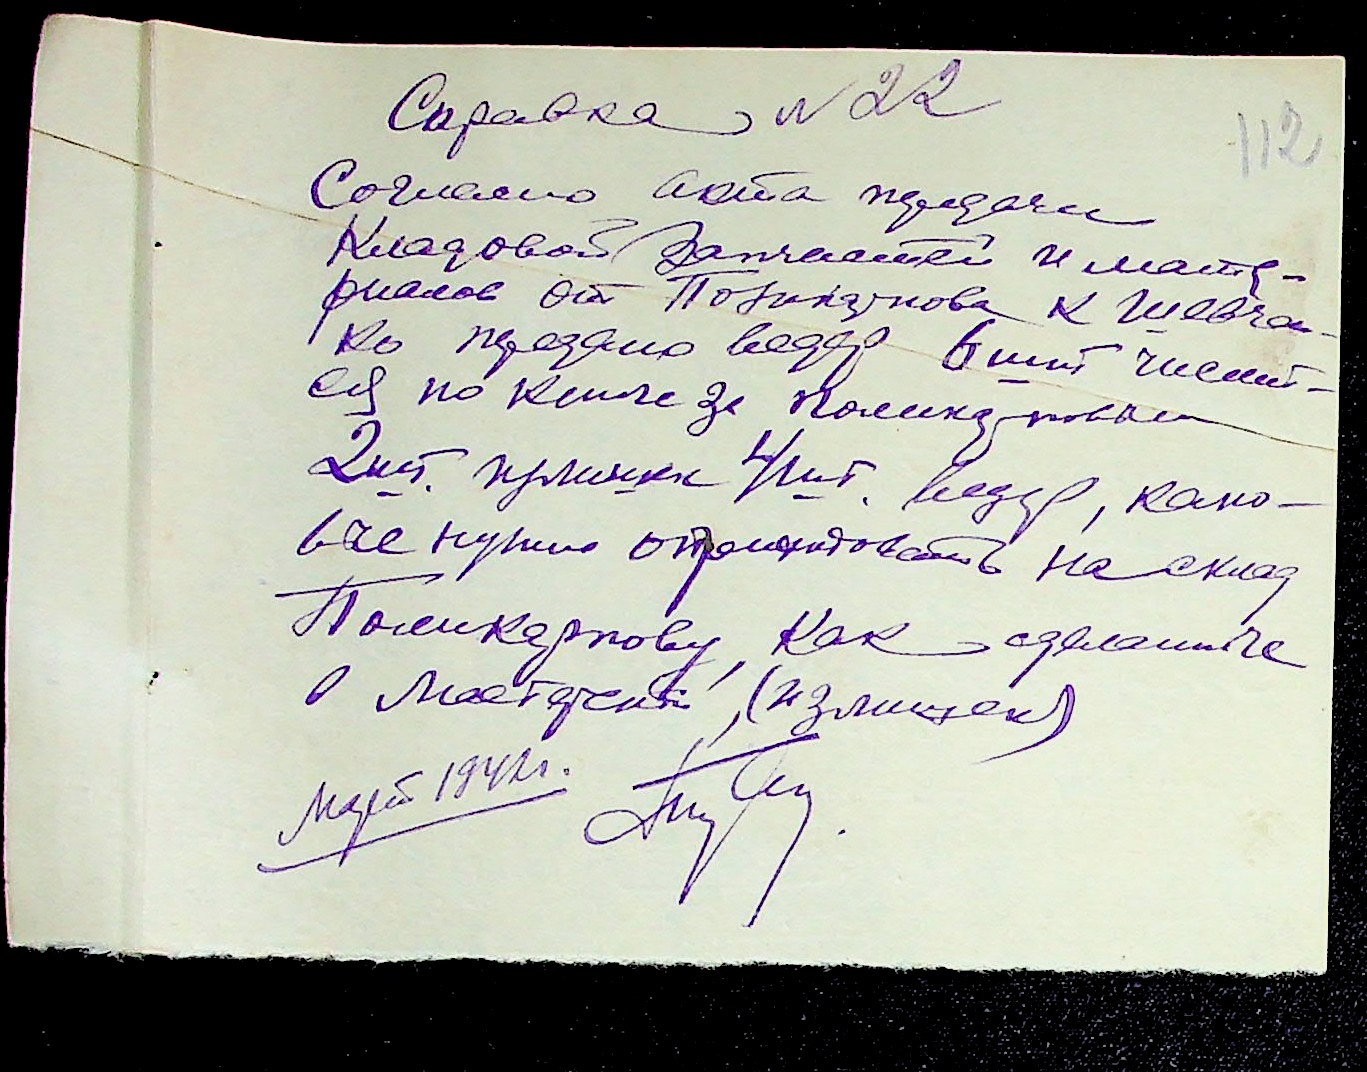 Справка № 22
112
Согласно акта передачи
Кладовой Запчастей и мате-
риалов от Поликарпова к Шевчен-
ко передано ведер 6 шт числит-
ся по книге за Поликарповым
2 шт. излишки 4 шт. ведер, како-
вые нужно оприходовать на склад
Поликарпову, как сделанные
в мастерской, (излишек)
Март 1941г.